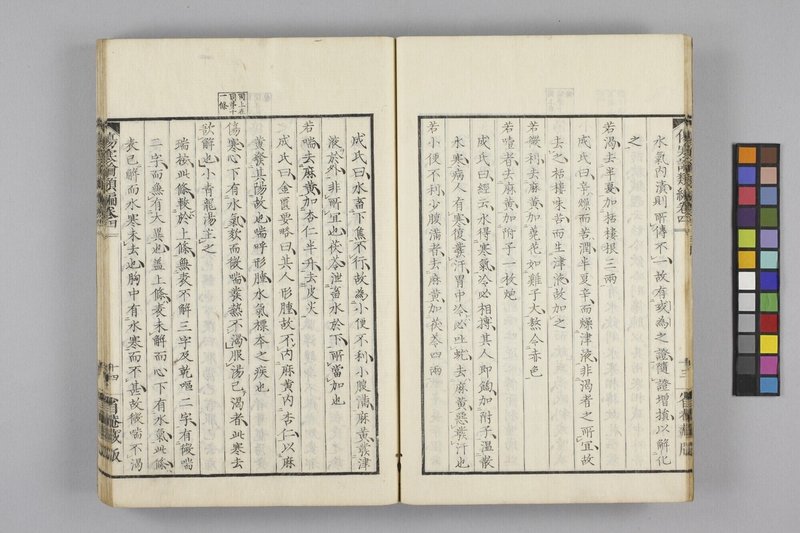 水氣内漬則所傳不一故有或爲之證隨證增損以解化
之
若渴去半夏加栝樓根三兩
成氏曰辛燥而苦潤半夏辛而燥津液非渴者之所宜故
去之栝樓味苦而生津液故加之
若微利去麻黄加蕘花如雞子大熬令赤色
若噎者去麻黄加附子一枚炮
成氏曰經云水得寒氣冷必相摶其人即䭇加附子温散
水寒病人有寒復發汗胃中冷必吐蚘去麻黄惡發汗也
若小便不利少腹滿者去麻黄加茯苓四兩
傷寒論類編卷四
十三
省菴藏版
成氏曰水畜下焦不行故爲小便不利小腹滿麻黄發津
液於外非所宜也茯苓泄畜水於下所當加也
若喘去麻黄加杏仁半升去皮尖
成氏曰金匱要略曰其人形腫故不内麻黄内杏仁以麻
黄發其陽故也喘呼形腫水氣標本之疾也
傷寒心下有水氣欬而微喘發熱不渴服湯已渴者此寒去
欲解也小青龍湯主之
喘按此條較於上條無表不解三字及乾嘔二字有微喘
二字而無有大異也蓋上條表未解而心下有水氣此條
表已解而水寒未去也胸中有水寒而不甚故微喘不渴
傷寒論類編卷四
十四
省菴藏版